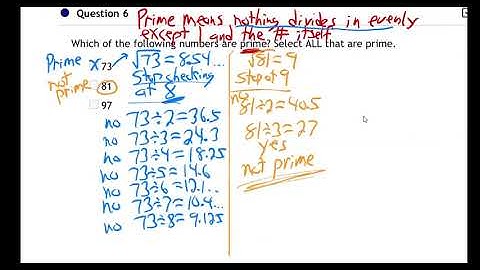 Question 6
Prime means nothing divides in evenly
except 1 and the # itself
Which of the following numbers are prime? Select ALL that are prime.
Prime x 73
not prime 81
97
√73 = 8.54...
Stop checking
at 8
no 73÷2=36.5
no 73÷3=24.3
no 73÷4=18.25
no 73÷5=14.6
no 73÷6=12.1..
no 73÷7=10.4...
no 73÷8=9.125
√81 = 9
stop at 9
no 81÷2=40.5
81÷3=27
yes
not prime